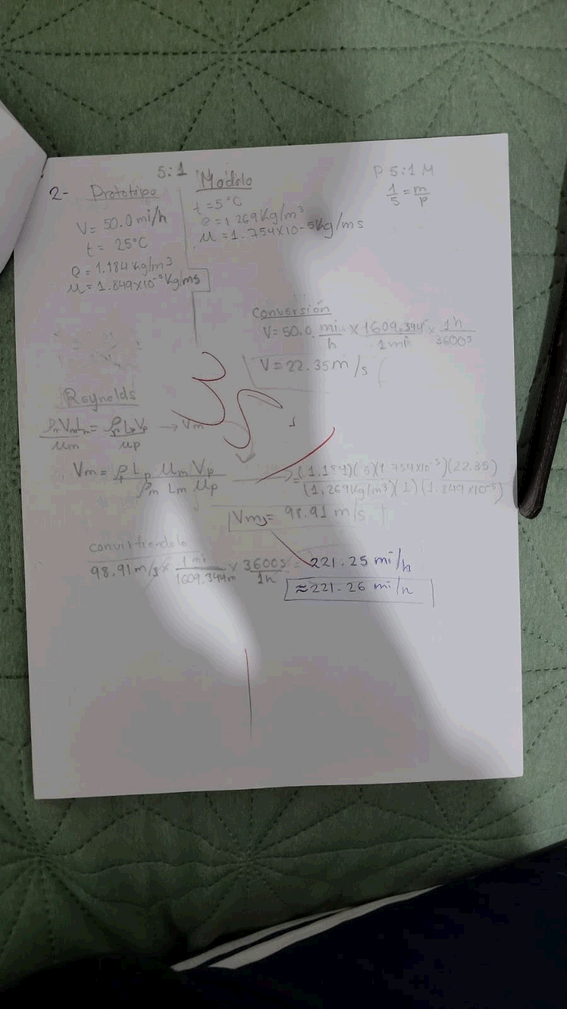 5:1
2- Prototipo
V= 50.0 mi/h
t= 25°C
ρ= 1.184 kg/m³
μ= 1.849x10⁻⁵ kg/ms
Modelo
t=5°C
ρ=1.269 Kg/m³
μ=1.754x10⁻⁵ Kg/ms
P 5:1 M
1/5 = m/p
Conversión
V= 50.0 mi/h x 1609.344/1 mi x 1h/3600s
V= 22.35 m/s
35
Reynolds
ρₘVₘLₘ/μₘ = ρₚLₚVₚ/μₚ → Vₘ
Vm= ρₚ Lₚ μₘ Vₚ / ρₘ Lₘ μₚ → (1.184)(5)(1.754x10⁻⁵)(22.35) / (1.269 kg/m³)(1)(1.849x10⁻⁵)
Vm= 98.91 m/s
convirtiendolo
98.91 m/s x 1 mi/1609.344m x 3600s/1h = 221.25 mi/h
≈221.26 mi/h